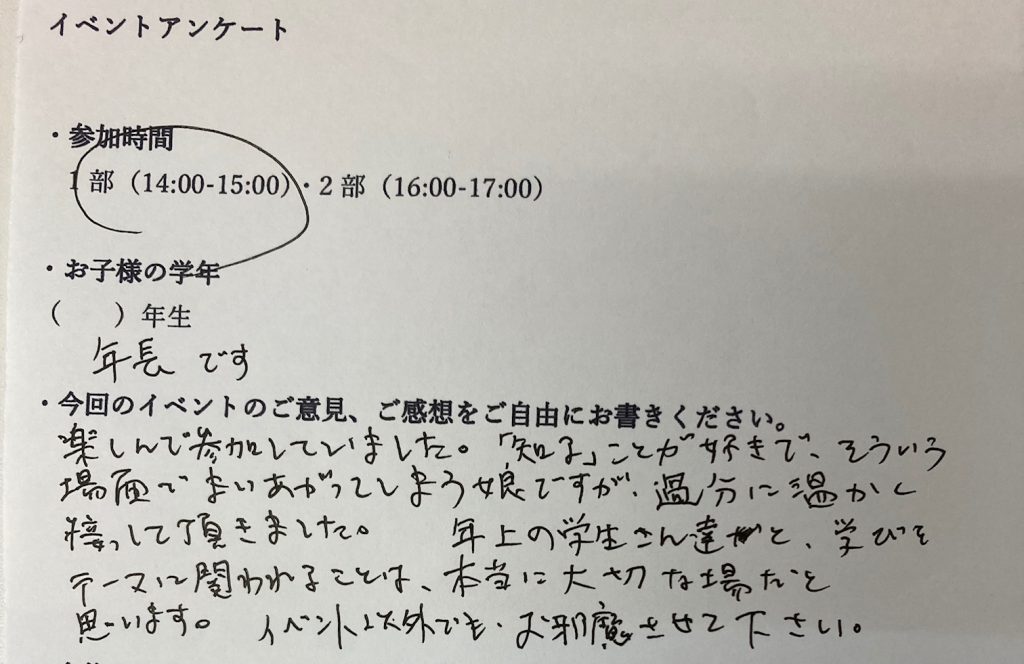 イベントアンケート
・参加時間
1部（14:00-15:00）・2部（16:00-17:00）
・お子様の学年
（　　）年生
年長です
・今回のイベントのご意見、ご感想をご自由にお書きください。
楽しんで参加していました。「知る」ことが好きで、そういう
場面でまいあがってしまう娘ですが、過分に温かく
接っして頂きました。　年上の学生さん達と、学びを
テーマに関われることは、本当に大切な場だと
思います。　イベント以外でも、お邪魔させて下さい。